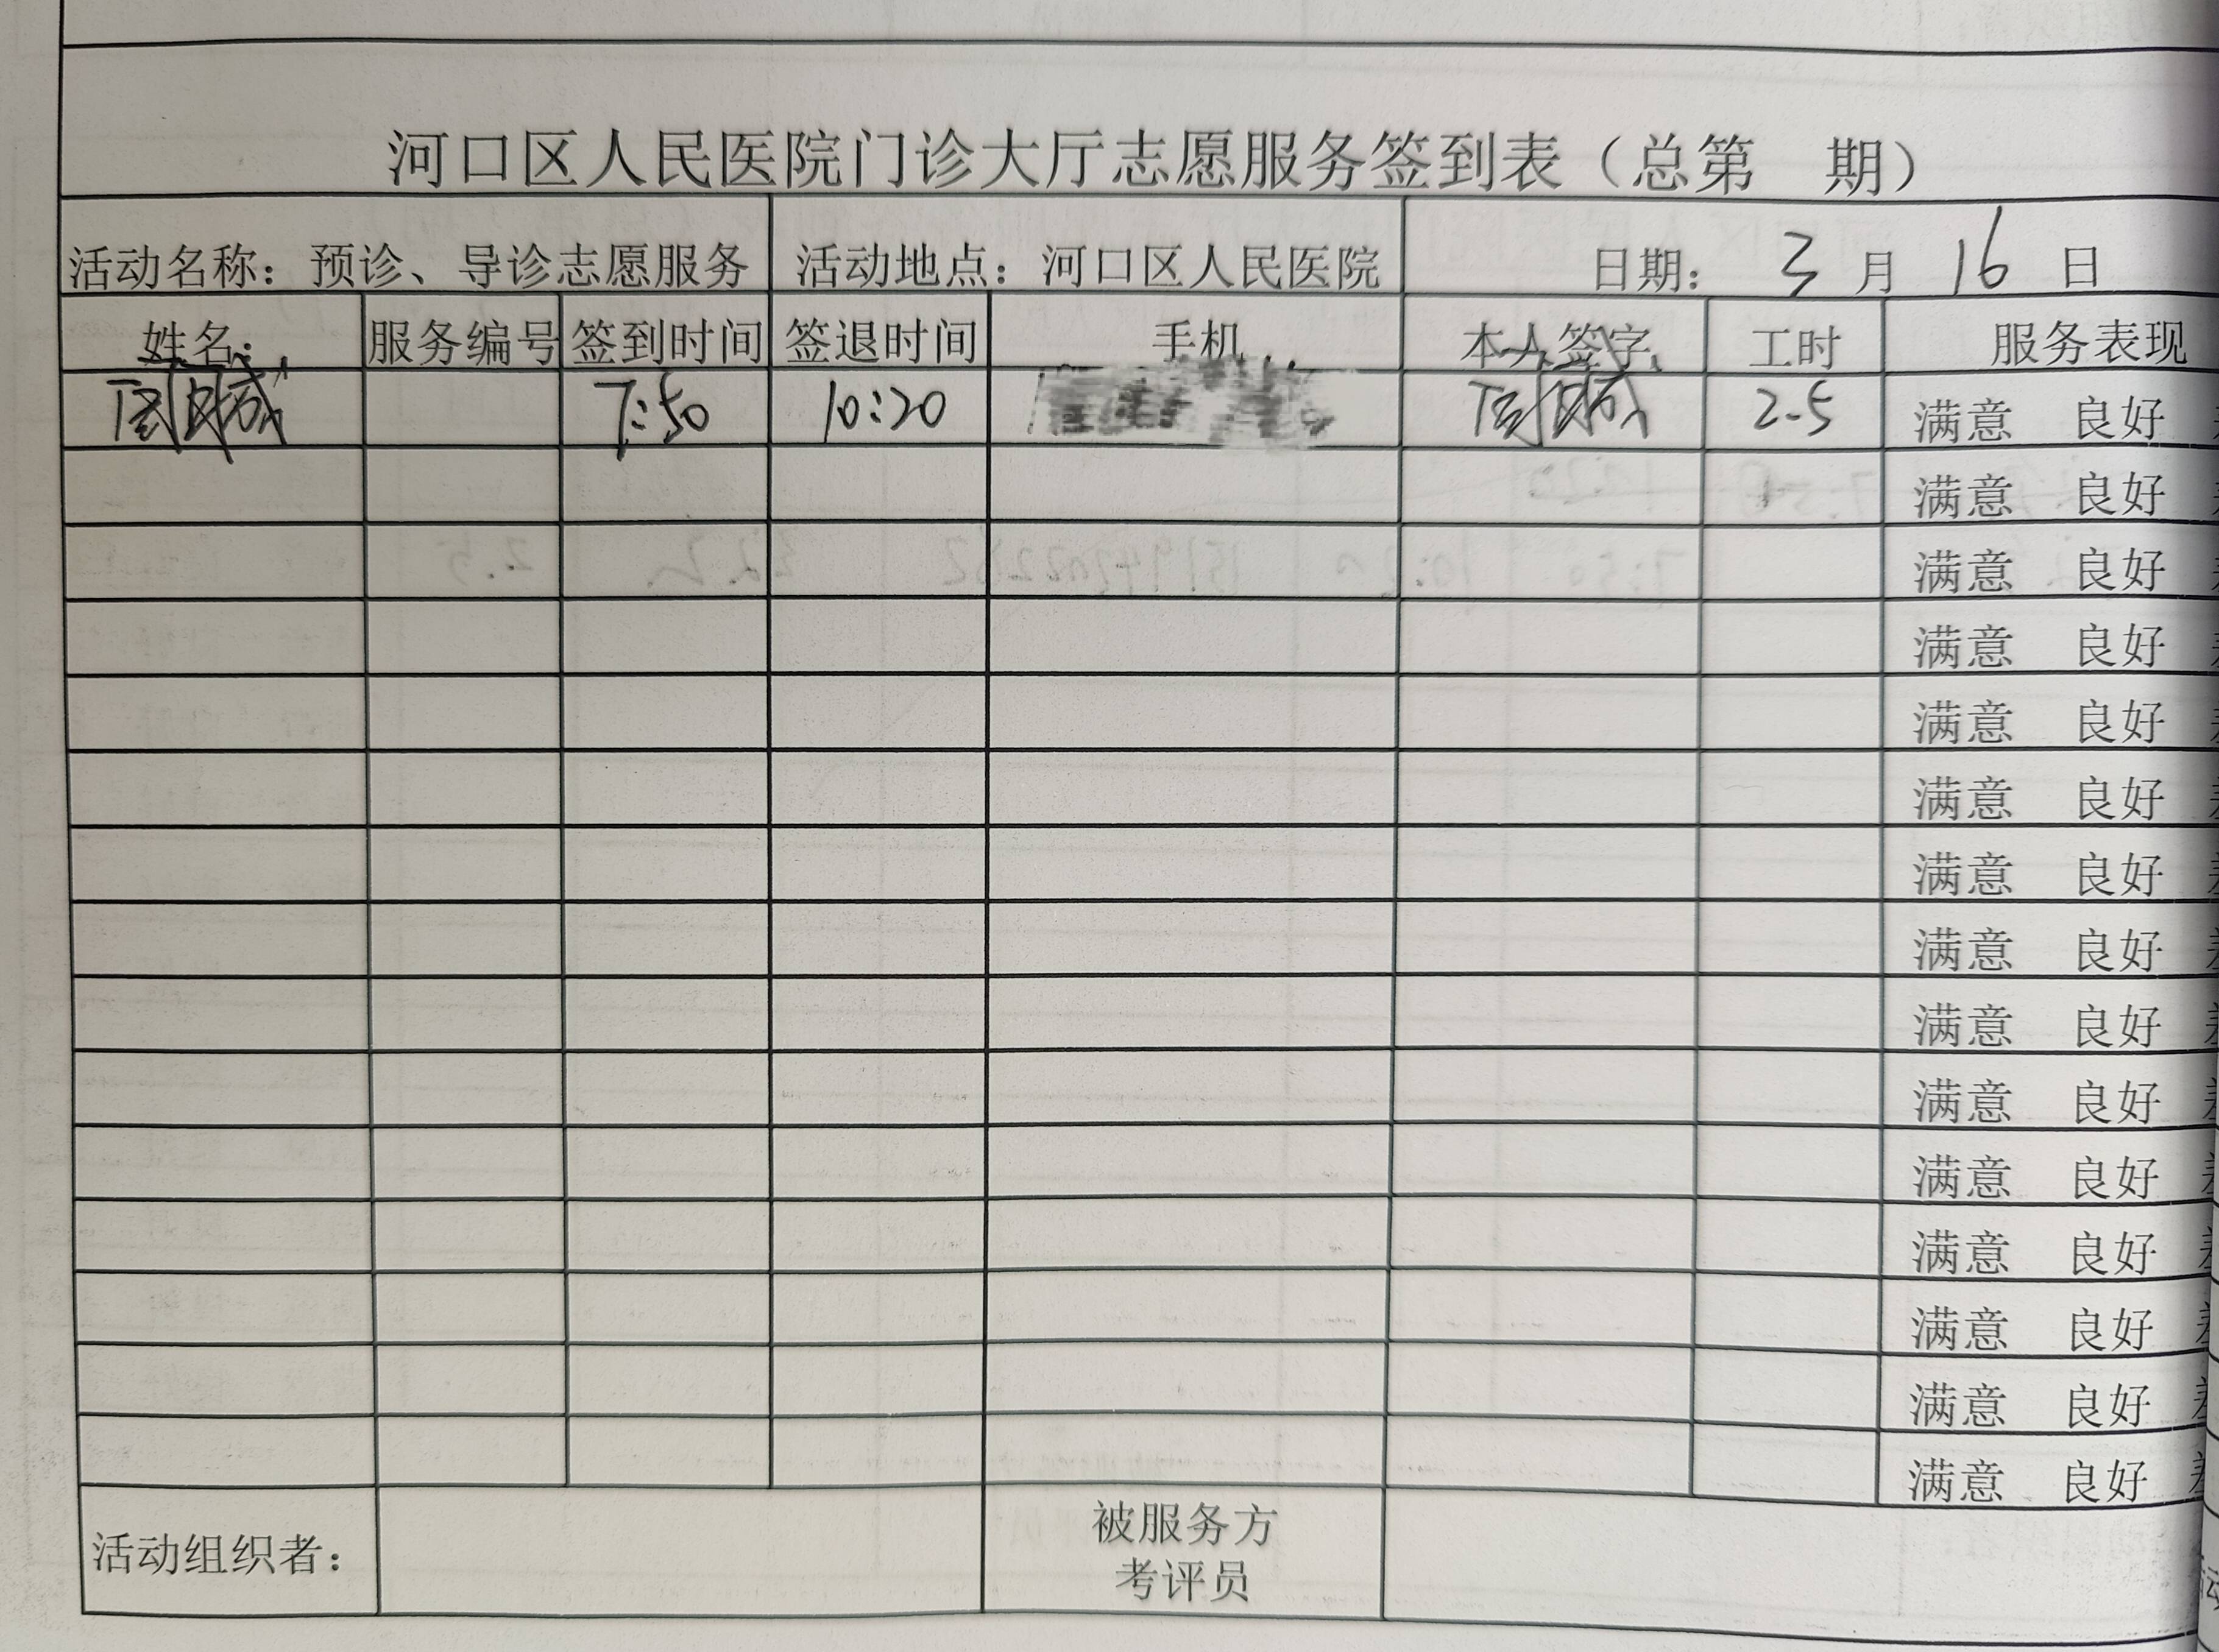 河口区人民医院门诊大厅志愿服务签到表（总第 期）
活动名称：预诊、导诊志愿服务 活动地点：河口区人民医院 日期：3月16日
姓名： 服务编号 签到时间 签退时间 手机 本人签字 工时 服务表现
7:50 10:20 2.5 满意 良好
满意 良好
满意 良好
满意 良好
满意 良好
满意 良好
满意 良好
满意 良好
满意 良好
满意 良好
满意 良好
满意 良好
满意 良好
满意 良好
满意 良好
活动组织者： 被服务方
考评员